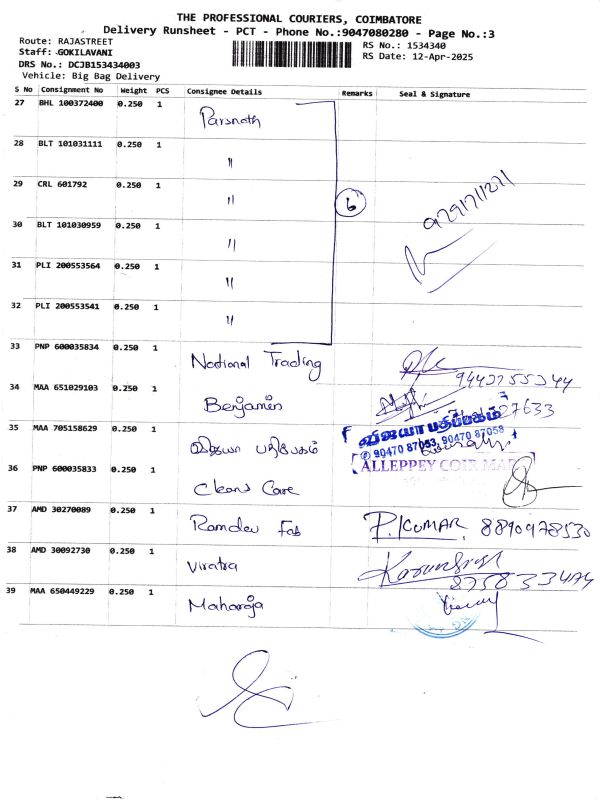 THE PROFESSIONAL COURIERS, COIMBATORE
Delivery Runsheet - PCT - Phone No.:9047080280 - Page No.:3
Route: RAJASTREET
Staff: GOKILAVANI
DRS No.: DCJB153434003
Vehicle: Big Bag Delivery
RS No.: 1534340
RS Date: 12-Apr-2025
S No Consignment No Weight PCS Consignee Details Remarks Seal & Signature
27 BHL 100372400 0.250 1 Parsnath
28 BLT 101031111 0.250 1 "
29 CRL 601792 0.250 1 " 6 9791711271
30 BLT 101030959 0.250 1 "
31 PLI 200553564 0.250 1 "
32 PLI 200553541 0.250 1 "
33 PNP 600035834 0.250 1 National Trading
34 MAA 651029103 0.250 1 Benjamin 27633
35 MAA 705158629 0.250 1 விஜயா பதிப்பகம்
விஜயா பதிப்பகம்
90470 87053, 90470 87058
36 PNP 600035833 0.250 1 Clean Care
ALLEPPEY COIR MART
37 AMD 30270089 0.250 1 Ramdev Fab P. KUMAR 8890978530
38 AMD 30092730 0.250 1 Viratra
39 MAA 650449229 0.250 1 Maharaja